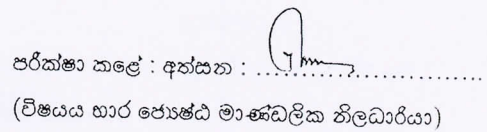 පරීක්ෂා කළේ : අත්සන : ................................
(විෂයය භාර ජ්‍යෙෂ්ඨ මාණ්ඩලික නිලධාරියා)